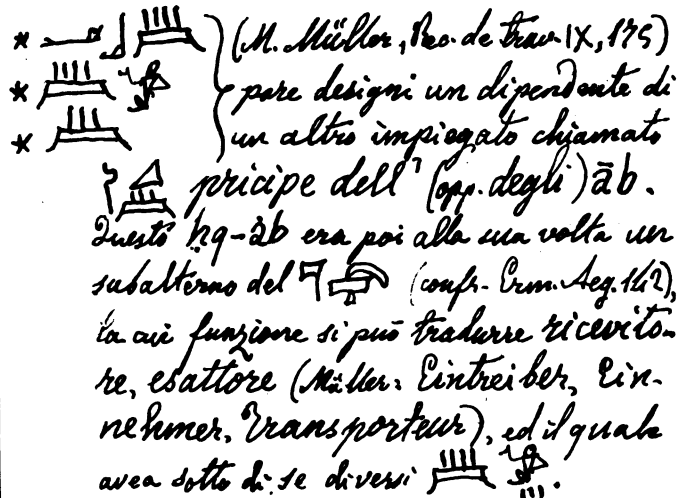 (M. Müller, Rec. de trav. IX, 175)
pare designi un dipendente di
un altro impiegato chiamato
pricipe dell' (opp. degli) āb.
Questo ḥq-āb era poi alla sua volta un
subalterno del (confr. Erm. Aeg. 142),
la cui funzione si può tradurre ricevito-
re, esattore (Müller: Eintreiber, Ein-
nehmer, Transporteur), ed il quale
avea sotto di se diversi .